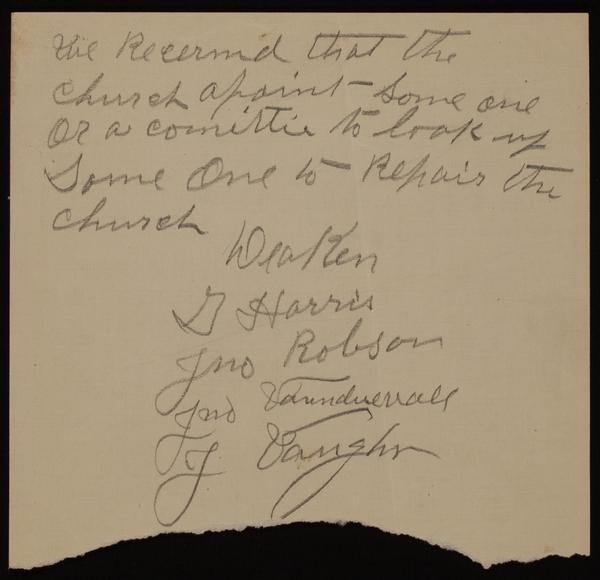 We Recermd that the
church apoint some one
Or a comittie to look up
Some One to Repair the
church
Deaken
G Harris
Jno Robson
Jno
J Vaughn